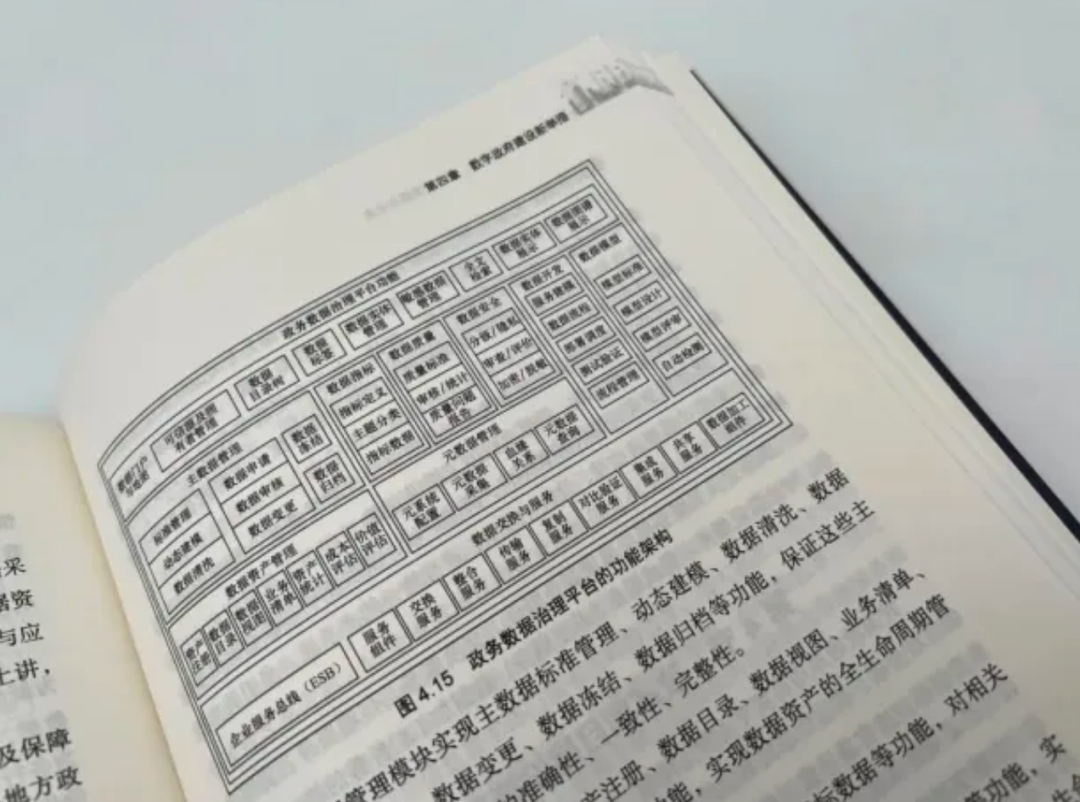 第四章 数字政府建设新举措
政务数据治理平台功能
数据门户
可信源及拥有者管理
数据目录树
数据标签
数据实体管理
敏感数据管理
全文检索
数据实体展示
数据图谱展示
主数据管理
标准管理
动态建模
数据清洗
数据申请
数据审核
数据变更
数据冻结
数据归档
数据指标
指标定义
主题分类
指标数据
数据质量
质量标准
审核/统计
质量问题报告
数据安全
分级/授权
审查/评估
加密/脱敏
数据开发
服务建模
数据流程
部署调度
测试验证
流程管理
数据模型
模型标准
模型设计
模型评审
自动检测
数据资产管理
资产注册
数据目录
数据视图
业务清单
资产统计
成本评估
价值评估
元数据管理
元系统配置
元数据采集
血缘关系
元数据查询
数据交换与服务
企业服务总线(ESB)
服务组件
交换服务
整合服务
传输服务
复制服务
对比验证服务
集成服务
共享服务
数据加工组件
图 4.15 政务数据治理平台的功能架构
管理模块实现主数据标准管理、动态建模、数据清洗、数据
数据变更、数据冻结、数据归档等功能，保证这些主
的准确性、一致性、完整性。
产注册、数据目录、数据视图、业务清单、
功能，实现数据资产的全生命周期管
标数据等功能，对相关
等功能，实
采
据资
与应
上讲，
及保障
地方政